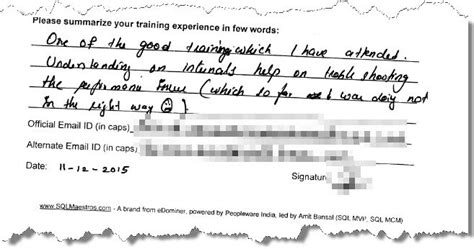 Please summarize your training experience in few words:
One of the good training which I have attended.
Understanding on internals help on trouble shooting
the performance issue (which so far I was doing not
in the right way ☺).
Official Email ID (in caps)
Alternate Email ID (in caps)
Date: 11-12-2015 Signatur
www.SQLMaestros.com - A brand from eDominer, powered by Peopleware India, led by Amit Bansal (SQL MVP, SQL MCM)